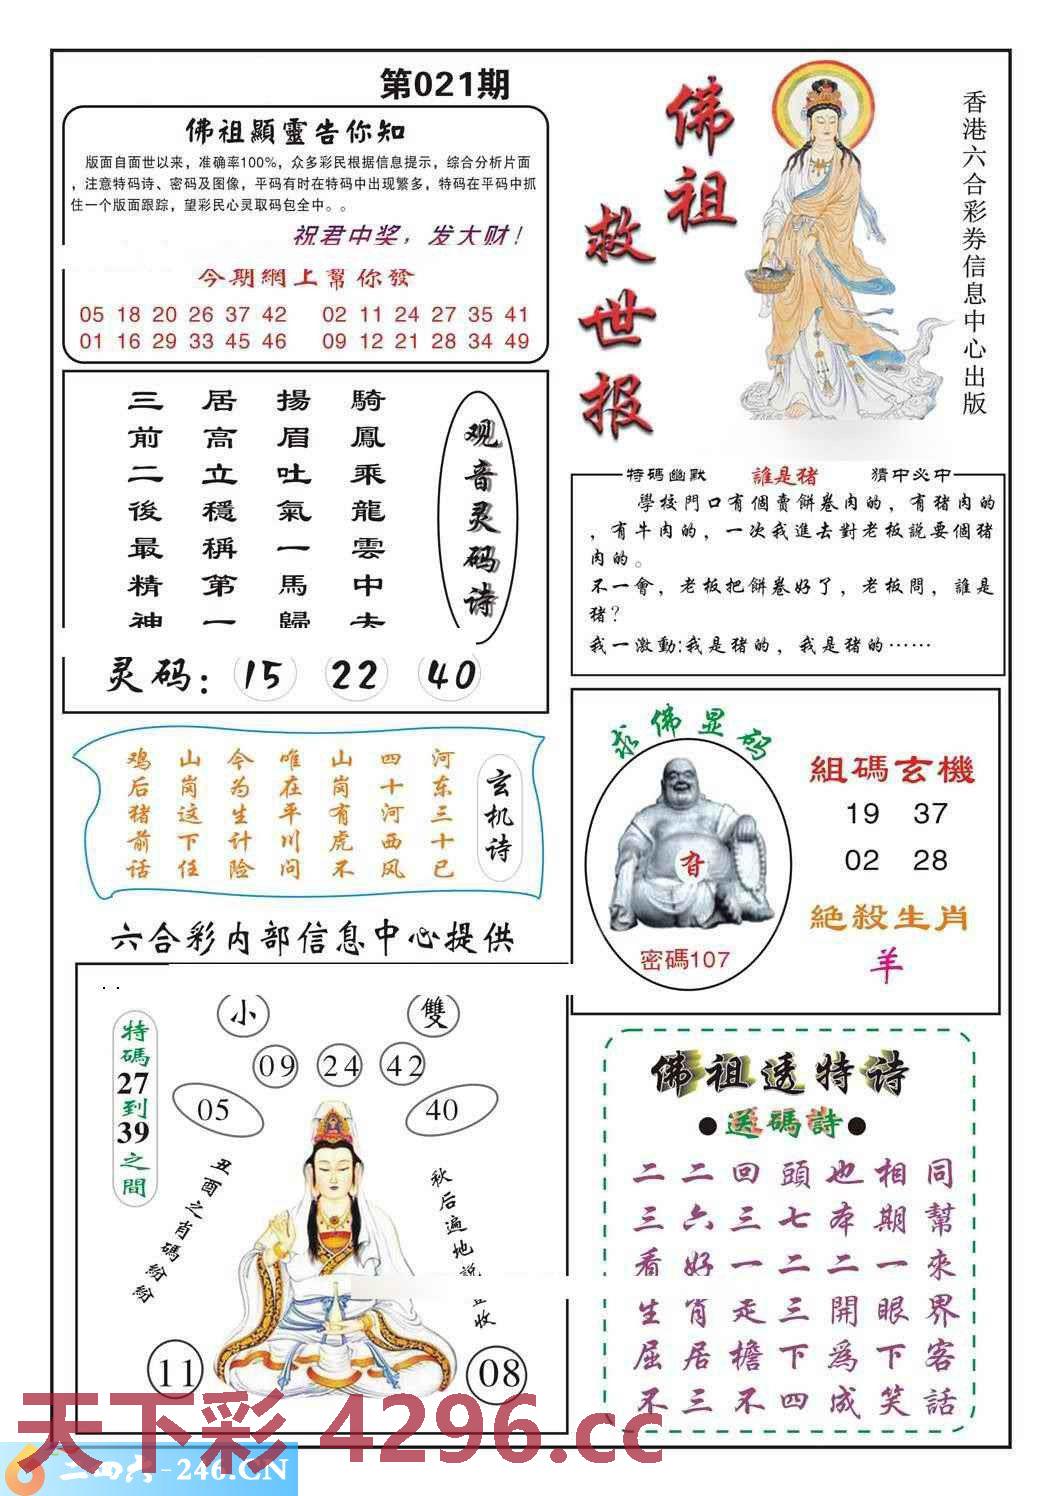 第021期
佛祖顯靈告你知
版面自面世以来，准确率100%，众多彩民根据信息提示，综合分析片面
，注意特码诗、密码及图像，平码有时在特码中出现繁多，特码在平码中抓
住一个版面跟踪，望彩民心灵取码包全中。。
祝君中奖，发大财！
今期網上幫你發
05 18 20 26 37 42 02 11 24 27 35 41
01 16 29 33 45 46 09 12 21 28 34 49
佛祖
救世报
香港六合彩券信息中心出版
观音灵码诗
騎鳳乘龍雲中去
揚眉吐氣一馬歸
居高立穩稱第一
三前二後最精神
灵码：15 22 40
特碼幽默 誰是猪 猜中必中
學校門口有個賣餅卷肉的，有猪肉的
，有牛肉的，一次我進去對老板説要個猪
肉的。
不一會，老板把餅卷好了，老板問，誰是
猪？
我一激動:我是猪的，我是猪的……
玄机诗
河东三十已
四十河西风
山岗有虎不
唯在平川问
今为生计险
山岗这下任
鸡后猪前话
求佛显码
密碼107
組碼玄機
19 37
02 28
絶殺生肖
羊
六合彩内部信息中心提供
小 雙
09 24 42
05 40
特碼27到39之間
丑酉之肖碼紛紛
秋后遍地説收
11 08
佛祖透特诗
●送碼詩●
二二回頭也相同
三六三七本期幫
看好一二二一來
生肖走三開眼界
屈居檐下爲下客
不三不四成笑話
天下彩 4296.cc
二四六-246.CN